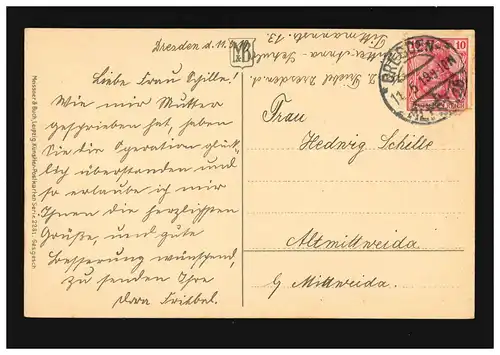 Dresden d. 11.
Liebe Frau Schille!
Wie mir Mutter
geschrieben hat, haben
Sie die Operation glück-
lich überstanden und
so erlaube ich mir
Ihnen die herzlichsten
Grüße, und gute
Besserung wünschend,
zu senden Ihre
Dora
Meissner & Buch, Leipzig. Künstler-Postkarten Serie 2281. Ges. gesch.
MB
Dresden
13.
DRESDEN
11. 5.
10
Frau
Hedwig Schille
Altmittweida
b/ Mittweida.